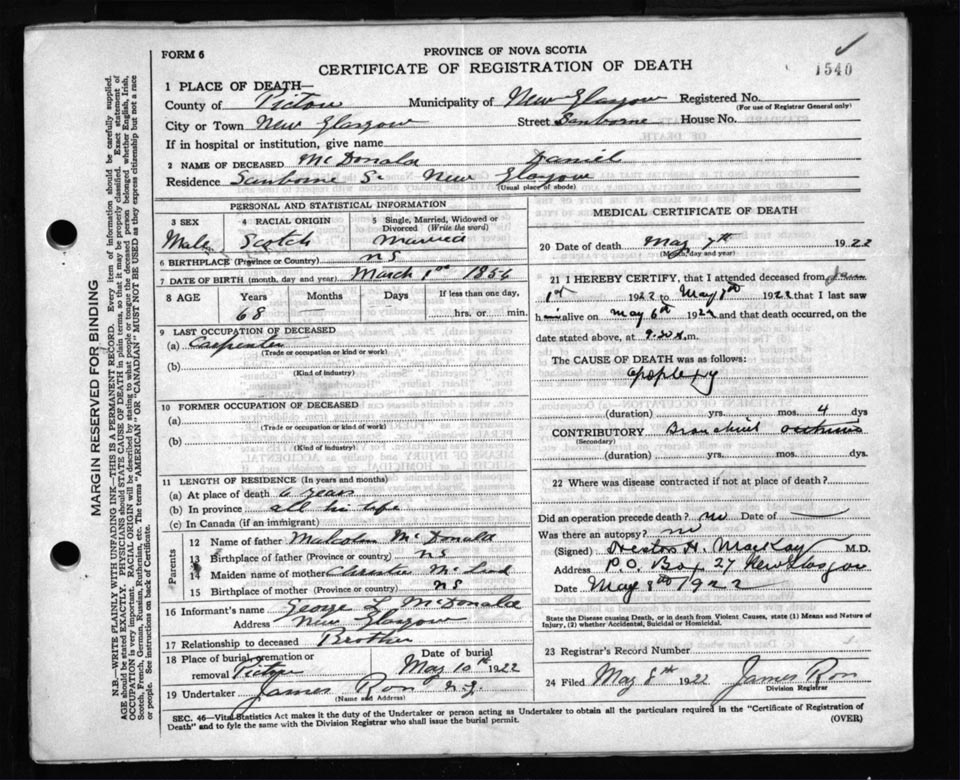 FORM 6
PROVINCE OF NOVA SCOTIA
CERTIFICATE OF REGISTRATION OF DEATH
1540
1 PLACE OF DEATH—
County of Pictou Municipality of New Glasgow Registered No.
(For use of Registrar General only)
City or Town New Glasgow Street Sanborne House No.
If in hospital or institution, give name
2 NAME OF DECEASED McDonald Daniel
Residence Sanborne S. New Glasgow
(Usual place of abode)
PERSONAL AND STATISTICAL INFORMATION
3 SEX 4 RACIAL ORIGIN 5 Single, Married, Widowed or Divorced (Write the word)
Male Scotch Married
6 BIRTHPLACE (Province or Country) NS
7 DATE OF BIRTH (month, day and year) March 1st 1854
8 AGE Years Months Days If less than one day,
68 hrs. or min.
9 LAST OCCUPATION OF DECEASED
(a) Carpenter
(Trade or occupation or kind or work)
(b)
(Kind of industry)
10 FORMER OCCUPATION OF DECEASED
(a)
(Trade or occupation or kind of work)
(b)
(Kind of industry)
11 LENGTH OF RESIDENCE (In years and months)
(a) At place of death 6 years
(b) In province all his life
(c) In Canada (if an immigrant)
Parents
12 Name of father Malcolm McDonald
13 Birthplace of father (Province or country) NS
14 Maiden name of mother Christie McLeod
15 Birthplace of mother (Province or country) NS
16 Informant's name George L McDonald
Address New Glasgow
17 Relationship to deceased Brother
18 Place of burial, cremation or removal Pictou Date of burial May 10th 1922
19 Undertaker James Ron N.G.
(Name and Address)
MEDICAL CERTIFICATE OF DEATH
20 Date of death May 7th 1922
(Month, day and year)
21 I HEREBY CERTIFY, that I attended deceased from
1st 1922 to May 7th 1922 that I last saw
him alive on May 6th 1922 and that death occurred, on the
date stated above, at 9.30 .m.
The CAUSE OF DEATH was as follows:
Apoplexy
(duration) yrs. mos. 4 dys
CONTRIBUTORY Bronchial asthma
(Secondary)
(duration) yrs. mos. dys.
22 Where was disease contracted if not at place of death?
Did an operation precede death? no Date of
Was there an autopsy? no
(Signed) H. MacKay M.D.
Address P.O. Box 27 New Glasgow
Date May 8th 1922
State the Disease causing Death, or in death from Violent Causes, state (1) Means and Nature of
Injury, (2) whether Accidental, Suicidal or Homicidal.
23 Registrar's Record Number
24 Filed May 8th 1922 James Ron
Division Registrar
SEC. 46—Vital Statistics Act makes it the duty of the Undertaker or person acting as Undertaker to obtain all the particulars required in the "Certificate of Registration of
Death" and to fyle the same with the Division Registrar who shall issue the burial permit.
(OVER)
MARGIN RESERVED FOR BINDING
N.B.—WRITE PLAINLY WITH UNFADING INK—THIS IS A PERMANENT RECORD. Every item of information should be carefully supplied.
AGE should be stated EXACTLY. PHYSICIANS should STATE CAUSE OF DEATH in plain terms, so that it may be properly classified. Exact statement of
OCCUPATION is very important. RACIAL ORIGIN will be described by stating to what people or tongue the deceased person belonged whether English, Irish,
Scotch, French, German, Russian, Ruthenian, etc. The terms "AMERICAN" OR "CANADIAN" MUST NOT BE USED as they express citizenship but not a race
or people. See instructions on back of Certificate.